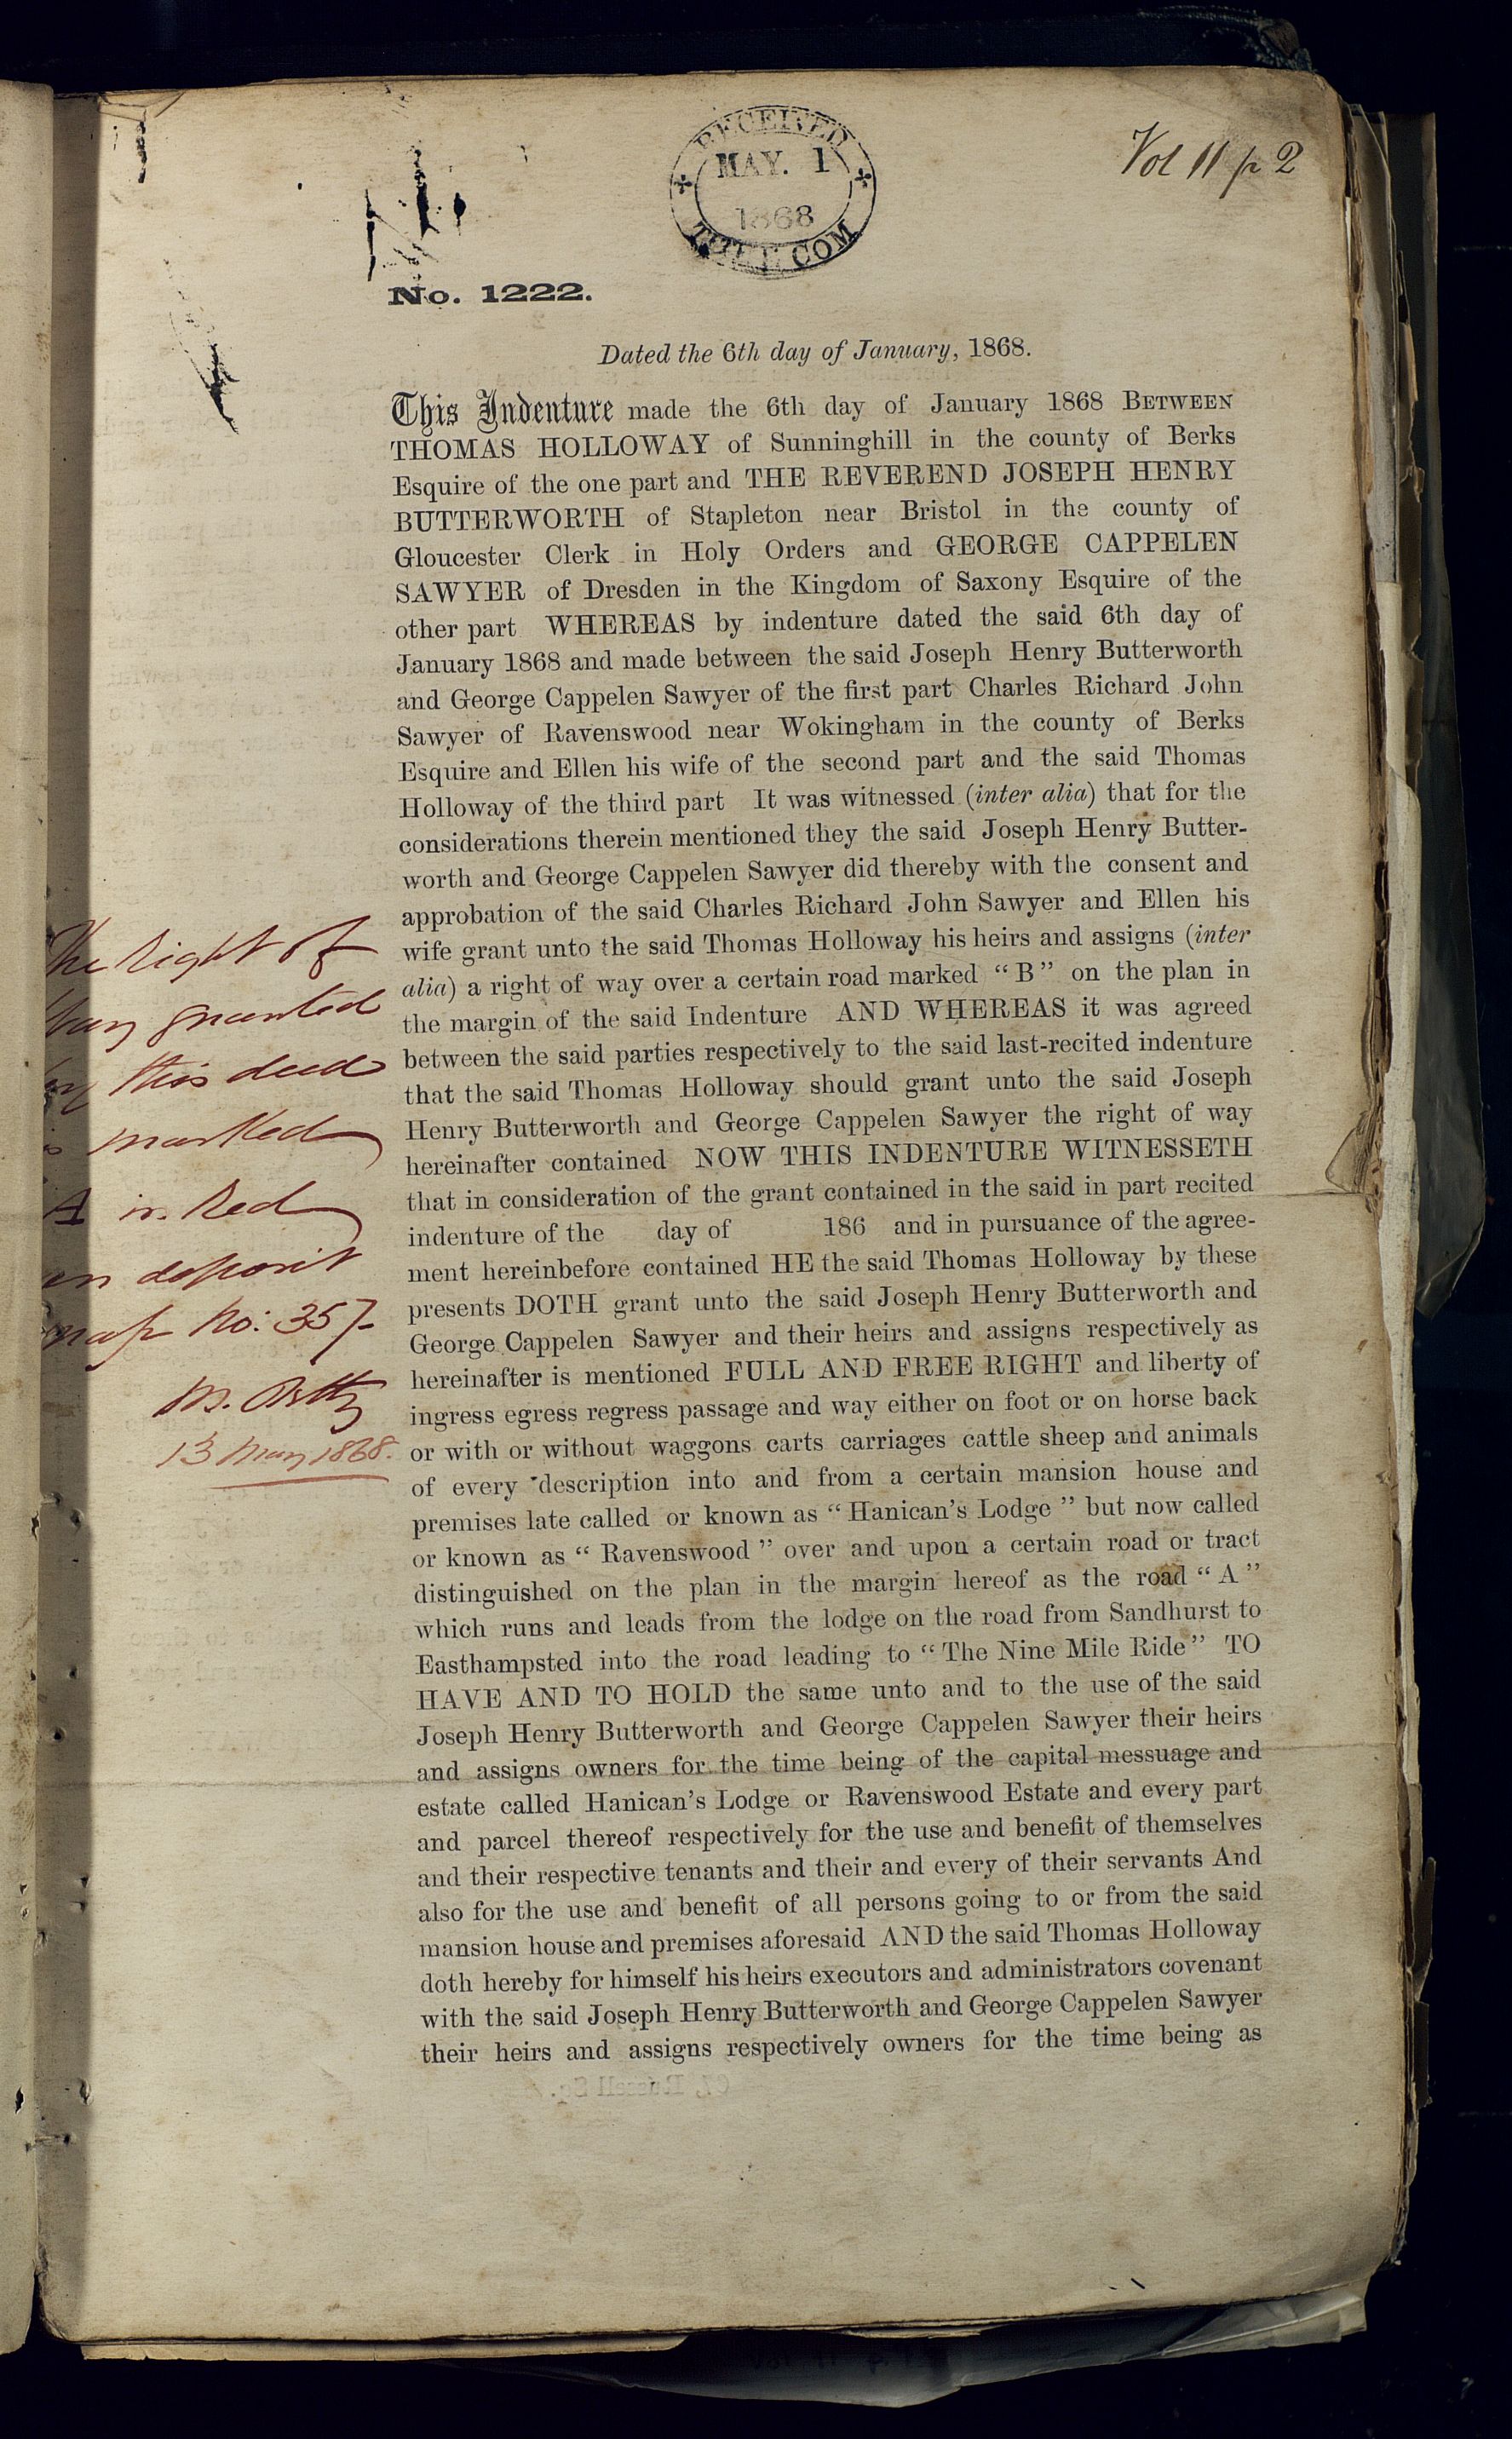 Vol 11 p 2
RECEIVED
MAY. 1
1868
COM
No. 1222.
Dated the 6th day of January, 1868.
This Indenture made the 6th day of January 1868 BETWEEN
THOMAS HOLLOWAY of Sunninghill in the county of Berks
Esquire of the one part and THE REVEREND JOSEPH HENRY
BUTTERWORTH of Stapleton near Bristol in the county of
Gloucester Clerk in Holy Orders and GEORGE CAPPELEN
SAWYER of Dresden in the Kingdom of Saxony Esquire of the
other part WHEREAS by indenture dated the said 6th day of
January 1868 and made between the said Joseph Henry Butterworth
and George Cappelen Sawyer of the first part Charles Richard John
Sawyer of Ravenswood near Wokingham in the county of Berks
Esquire and Ellen his wife of the second part and the said Thomas
Holloway of the third part It was witnessed (inter alia) that for the
considerations therein mentioned they the said Joseph Henry Butter-
worth and George Cappelen Sawyer did thereby with the consent and
approbation of the said Charles Richard John Sawyer and Ellen his
wife grant unto the said Thomas Holloway his heirs and assigns (inter
alia) a right of way over a certain road marked “B” on the plan in
the margin of the said Indenture AND WHEREAS it was agreed
between the said parties respectively to the said last-recited indenture
that the said Thomas Holloway should grant unto the said Joseph
Henry Butterworth and George Cappelen Sawyer the right of way
hereinafter contained NOW THIS INDENTURE WITNESSETH
that in consideration of the grant contained in the said in part recited
indenture of the day of 186 and in pursuance of the agree-
ment hereinbefore contained HE the said Thomas Holloway by these
presents DOTH grant unto the said Joseph Henry Butterworth and
George Cappelen Sawyer and their heirs and assigns respectively as
hereinafter is mentioned FULL AND FREE RIGHT and liberty of
ingress egress regress passage and way either on foot or on horse back
or with or without waggons carts carriages cattle sheep and animals
of every description into and from a certain mansion house and
premises late called or known as “Hanican's Lodge” but now called
or known as “Ravenswood” over and upon a certain road or tract
distinguished on the plan in the margin hereof as the road “A”
which runs and leads from the lodge on the road from Sandhurst to
Easthampsted into the road leading to “The Nine Mile Ride” TO
HAVE AND TO HOLD the same unto and to the use of the said
Joseph Henry Butterworth and George Cappelen Sawyer their heirs
and assigns owners for the time being of the capital messuage and
estate called Hanican's Lodge or Ravenswood Estate and every part
and parcel thereof respectively for the use and benefit of themselves
and their respective tenants and their and every of their servants And
also for the use and benefit of all persons going to or from the said
mansion house and premises aforesaid AND the said Thomas Holloway
doth hereby for himself his heirs executors and administrators covenant
with the said Joseph Henry Butterworth and George Cappelen Sawyer
their heirs and assigns respectively owners for the time being as
The right of
Way granted
by this deed
is marked
A in Red
on deposit
map No: 357
13 May 1868.